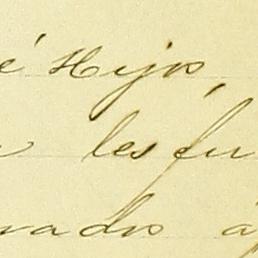 é Hijos,
les fu
rados á